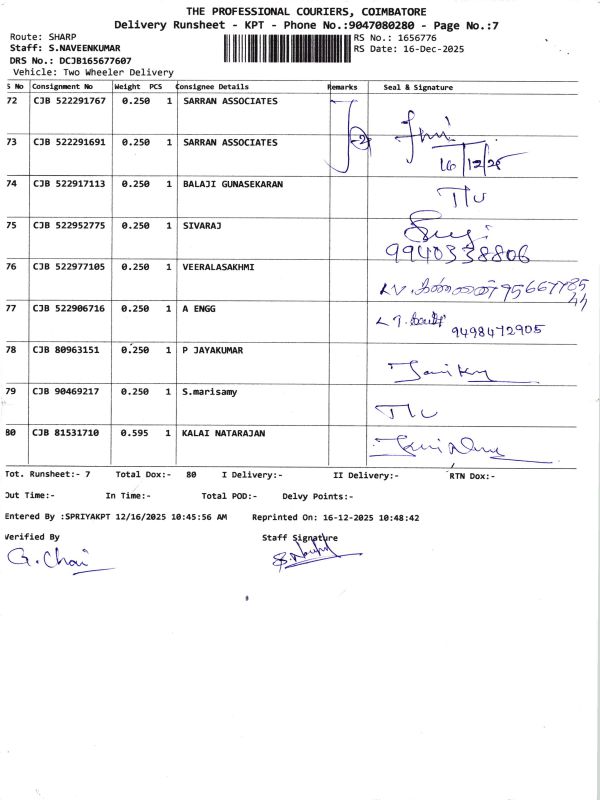 THE PROFESSIONAL COURIERS, COIMBATORE
Delivery Runsheet - KPT - Phone No.:9047080280 - Page No.:7
Route: SHARP
RS No.: 1656776
Staff: S.NAVEENKUMAR
RS Date: 16-Dec-2025
DRS No.: DCJB165677607
Vehicle: Two Wheeler Delivery
S No Consignment No Weight PCS Consignee Details Remarks Seal & Signature
72 CJB 522291767 0.250 1 SARRAN ASSOCIATES
73 CJB 522291691 0.250 1 SARRAN ASSOCIATES
16/12/25
74 CJB 522917113 0.250 1 BALAJI GUNASEKARAN
75 CJB 522952775 0.250 1 SIVARAJ
9940338806
76 CJB 522977105 0.250 1 VEERALASAKHMI
77 CJB 522906716 0.250 1 A ENGG
9498472905
78 CJB 80963151 0.250 1 P JAYAKUMAR
79 CJB 90469217 0.250 1 S.marisamy
80 CJB 81531710 0.595 1 KALAI NATARAJAN
Tot. Runsheet:- 7 Total Dox:- 80 I Delivery:- II Delivery:- RTN Dox:-
Out Time:- In Time:- Total POD:- Delvy Points:-
Entered By :SPRIYAKPT 12/16/2025 10:45:56 AM Reprinted On: 16-12-2025 10:48:42
Verified By Staff Signature
G. Chai